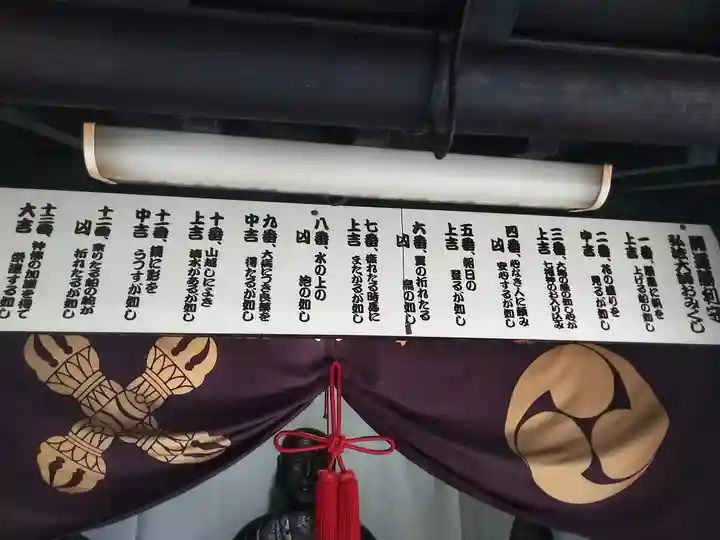 開運勝利守
弘法大師おみくじ
一番、順風に帆を
上吉 上げる船の如し
二番、花の盛りを
中吉 見るが如し
三番、
上吉 七福神のお入り込み
四番、心なき人に頼み
凶 安心するが如し
五番、朝日の
上吉 登るが如し
六番、翼の折れたる
凶 鶴の如し
七番、疲れたる時馬に
上吉 またがるが如し
八番、水の上の
凶 泡の如し
九番、大病によき良薬を
中吉 得たるが如し
十番、山越しによき
上吉 清水があるが如し
十一番、鏡に影を
中吉 うつすが如し
十二番、乗りたる船の舵が
凶 折れたるが如し
十三番、神佛の加護を得て
大吉 栄達する如し